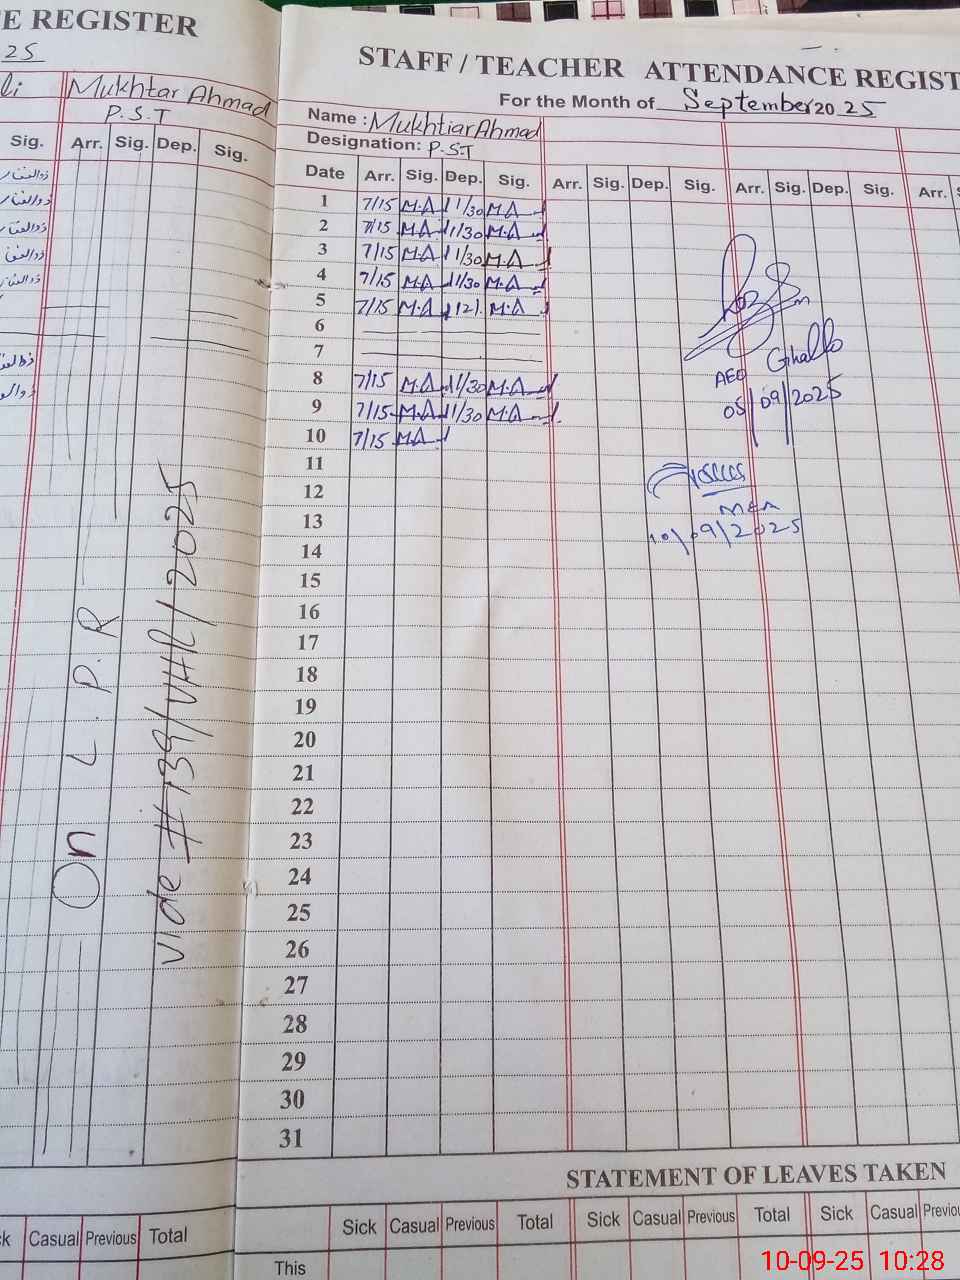 E REGISTER
25
li Mukhtar Ahmad
P.S.T
Sig. Arr. Sig. Dep. Sig.
ذوالفقار
ذوالفقار
ذوالفقار
ذوالفقار
ذوالفقار
On L.P.R
vide # 139/VHR/2025
ck Casual Previous Total
STAFF / TEACHER ATTENDANCE REGIST
For the Month of September 2025
Name : Mukhtiar Ahmad
Designation: P.S.T
Date Arr. Sig. Dep. Sig. Arr. Sig. Dep. Sig. Arr. Sig. Dep. Sig. Arr. S
1 7/15 M.A 1/30 M.A
2 7/15 M.A 1/30 M.A
3 7/15 M.A 1/30 M.A
4 7/15 M.A 1/30 M.A
5 7/15 M.A 12/. M.A
6
7
8 7/15 M.A 1/30 M.A
9 7/15 M.A 1/30 M.A
10 7/15 M.A
11
12
13
14
15
16
17
18
19
20
21
22
23
24
25
26
27
28
29
30
31
AEO Ghallo
05/09/2025
MEA
10/09/2025
STATEMENT OF LEAVES TAKEN
Sick Casual Previous Total Sick Casual Previous Total Sick Casual Previou
This
10-09-25 10:28